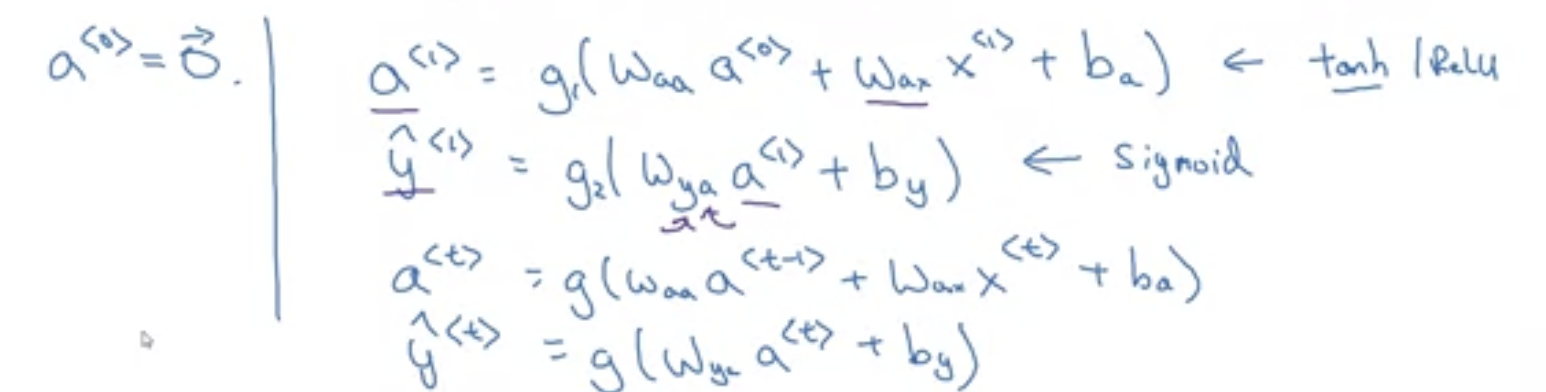 a^{<0>} = \vec{0}.
a^{<1>} = g_1(W_{aa} a^{<0>} + W_{ax} x^{<1>} + b_a) ← tanh | ReLU
ŷ^{<1>} = g_2(W_{ya} a^{<1>} + b_y) ← sigmoid
a^{<t>} = g(W_{aa} a^{<t-1>} + W_{ax} x^{<t>} + b_a)
ŷ^{<t>} = g(W_{ya} a^{<t>} + b_y)